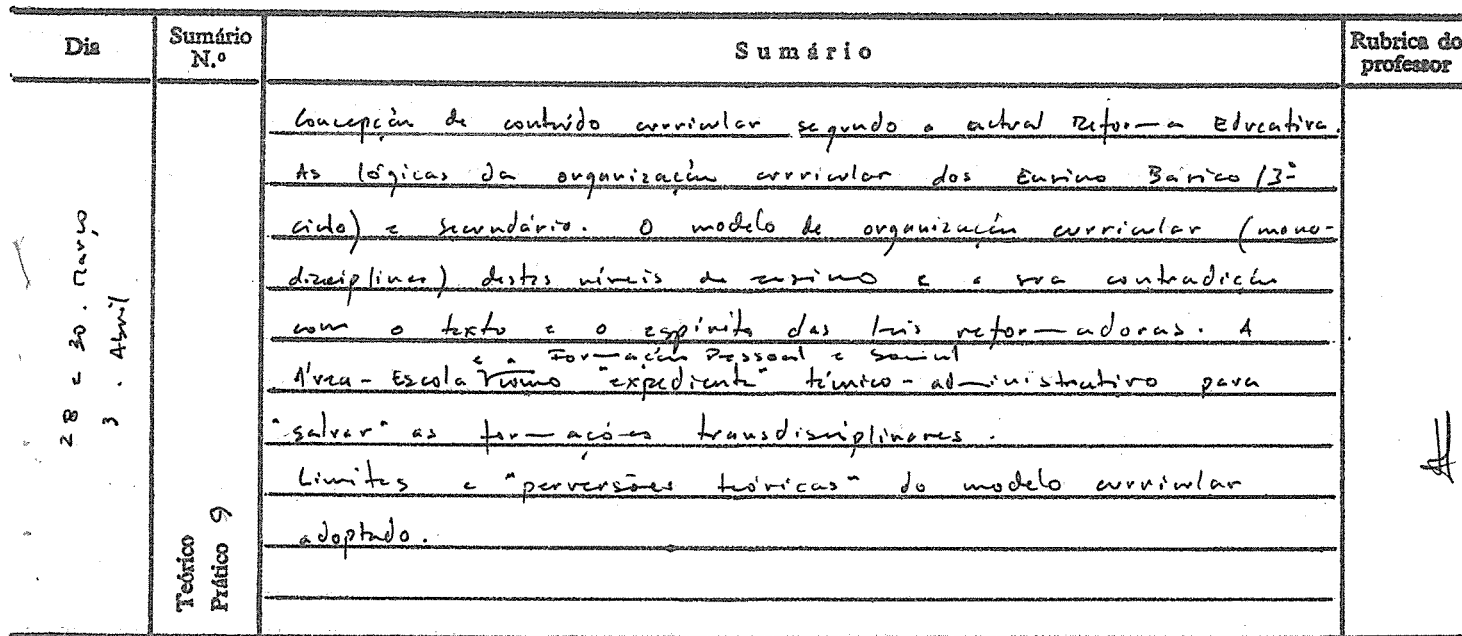 Dia
Sumário N.º
Sumário
Rubrica do professor
28 e 30 . Março
3 . Abril
Teórico
Prático 9
Concepção de conteúdo curricular segundo a actual Reforma Educativa.
As lógicas da organização curricular dos Ensino Básico (3º
ciclo) e secundário. O modelo de organização curricular (mono-
disciplinar) destes níveis de ensino e a sua contradição
com o texto e o espírito das leis reformadoras. A
e a Formação Pessoal e Social
Área-Escola como "expediente" técnico-administrativo para
"salvar" as formações transdisciplinares.
Limites e "perversões teóricas" do modelo curricular
adoptado.